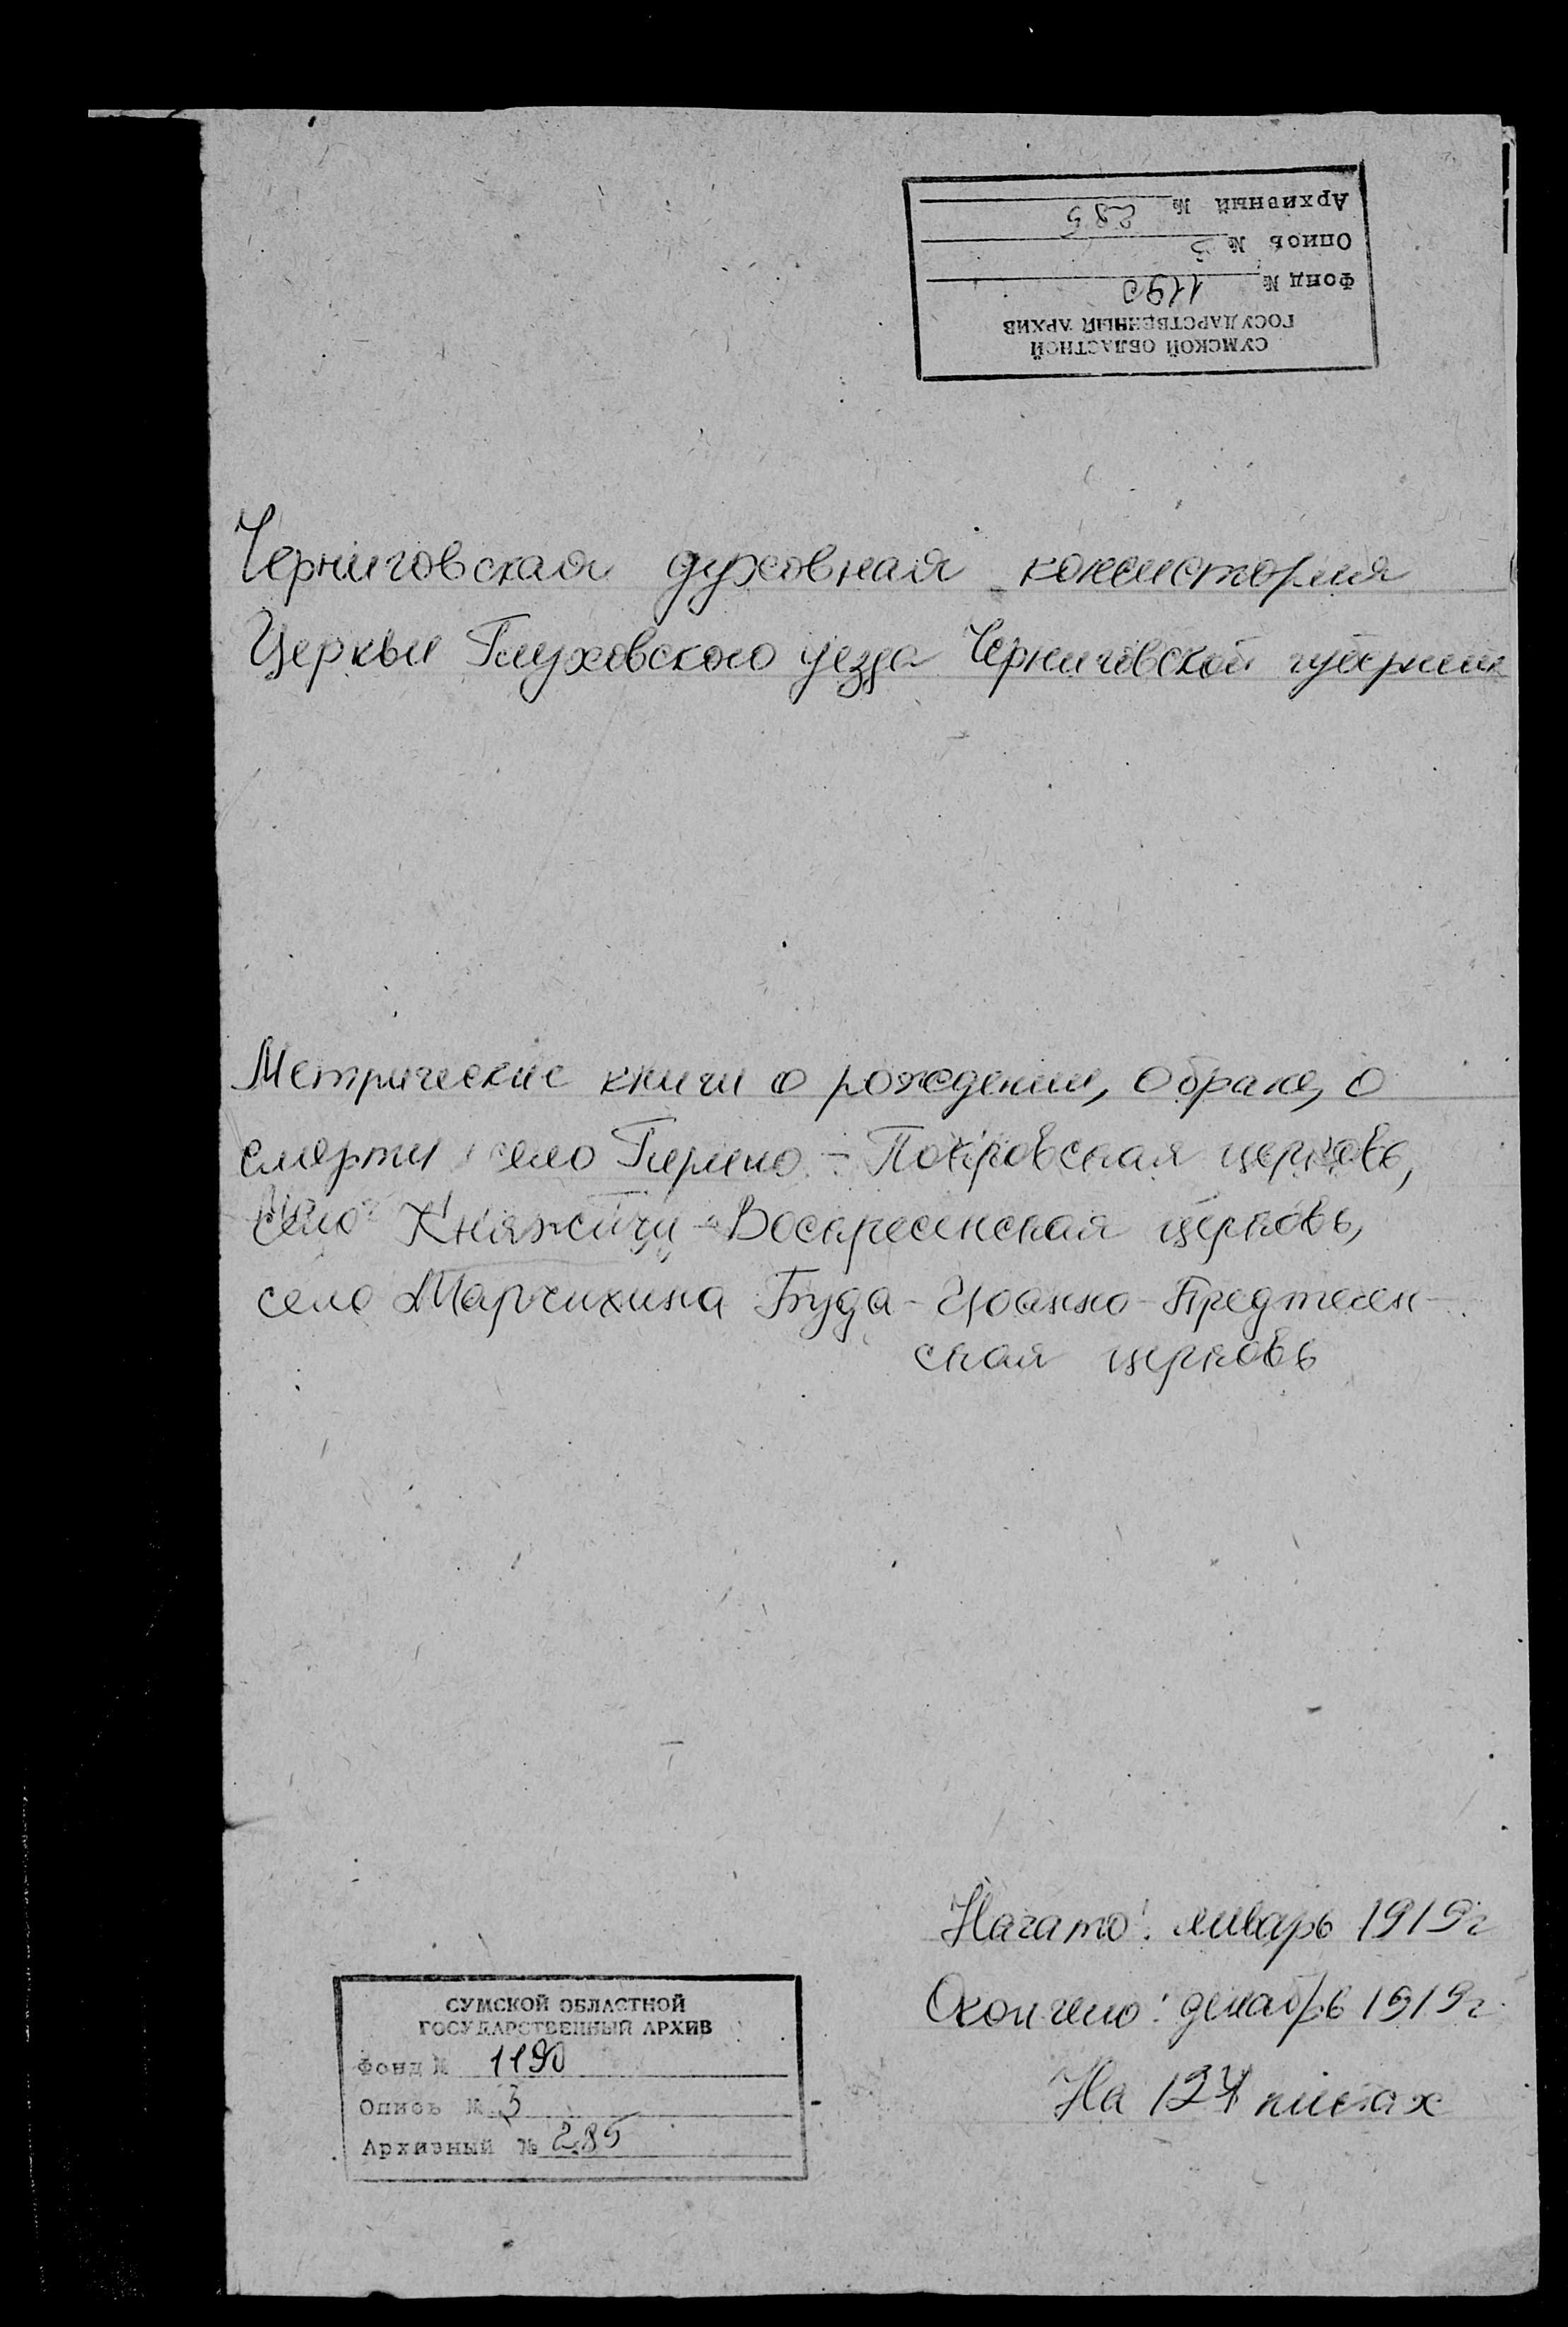 СУМСКОЙ ОБЛАСТНОЙ
ГОСУДАРСТВЕННЫЙ АРХИВ
Фонд № 1190
Опись № 3
Архивный № 285
Черниговская духовная консистория
Церкви Глуховского уезда Черниговской губернии
Метрические книги о рождении, о браке, о
смерти село Гирино - Покровская церковь,
село Княжичи - Воскресенская церковь,
село Марчихина Буда - Иоанно-Предтечен-
ская церковь
Начато: январь 1919г
Окончено: декабрь 1919г.
На 124 листах
СУМСКОЙ ОБЛАСТНОЙ
ГОСУДАРСТВЕННЫЙ АРХИВ
Фонд № 1190
Опись № 3
Архивный № 285